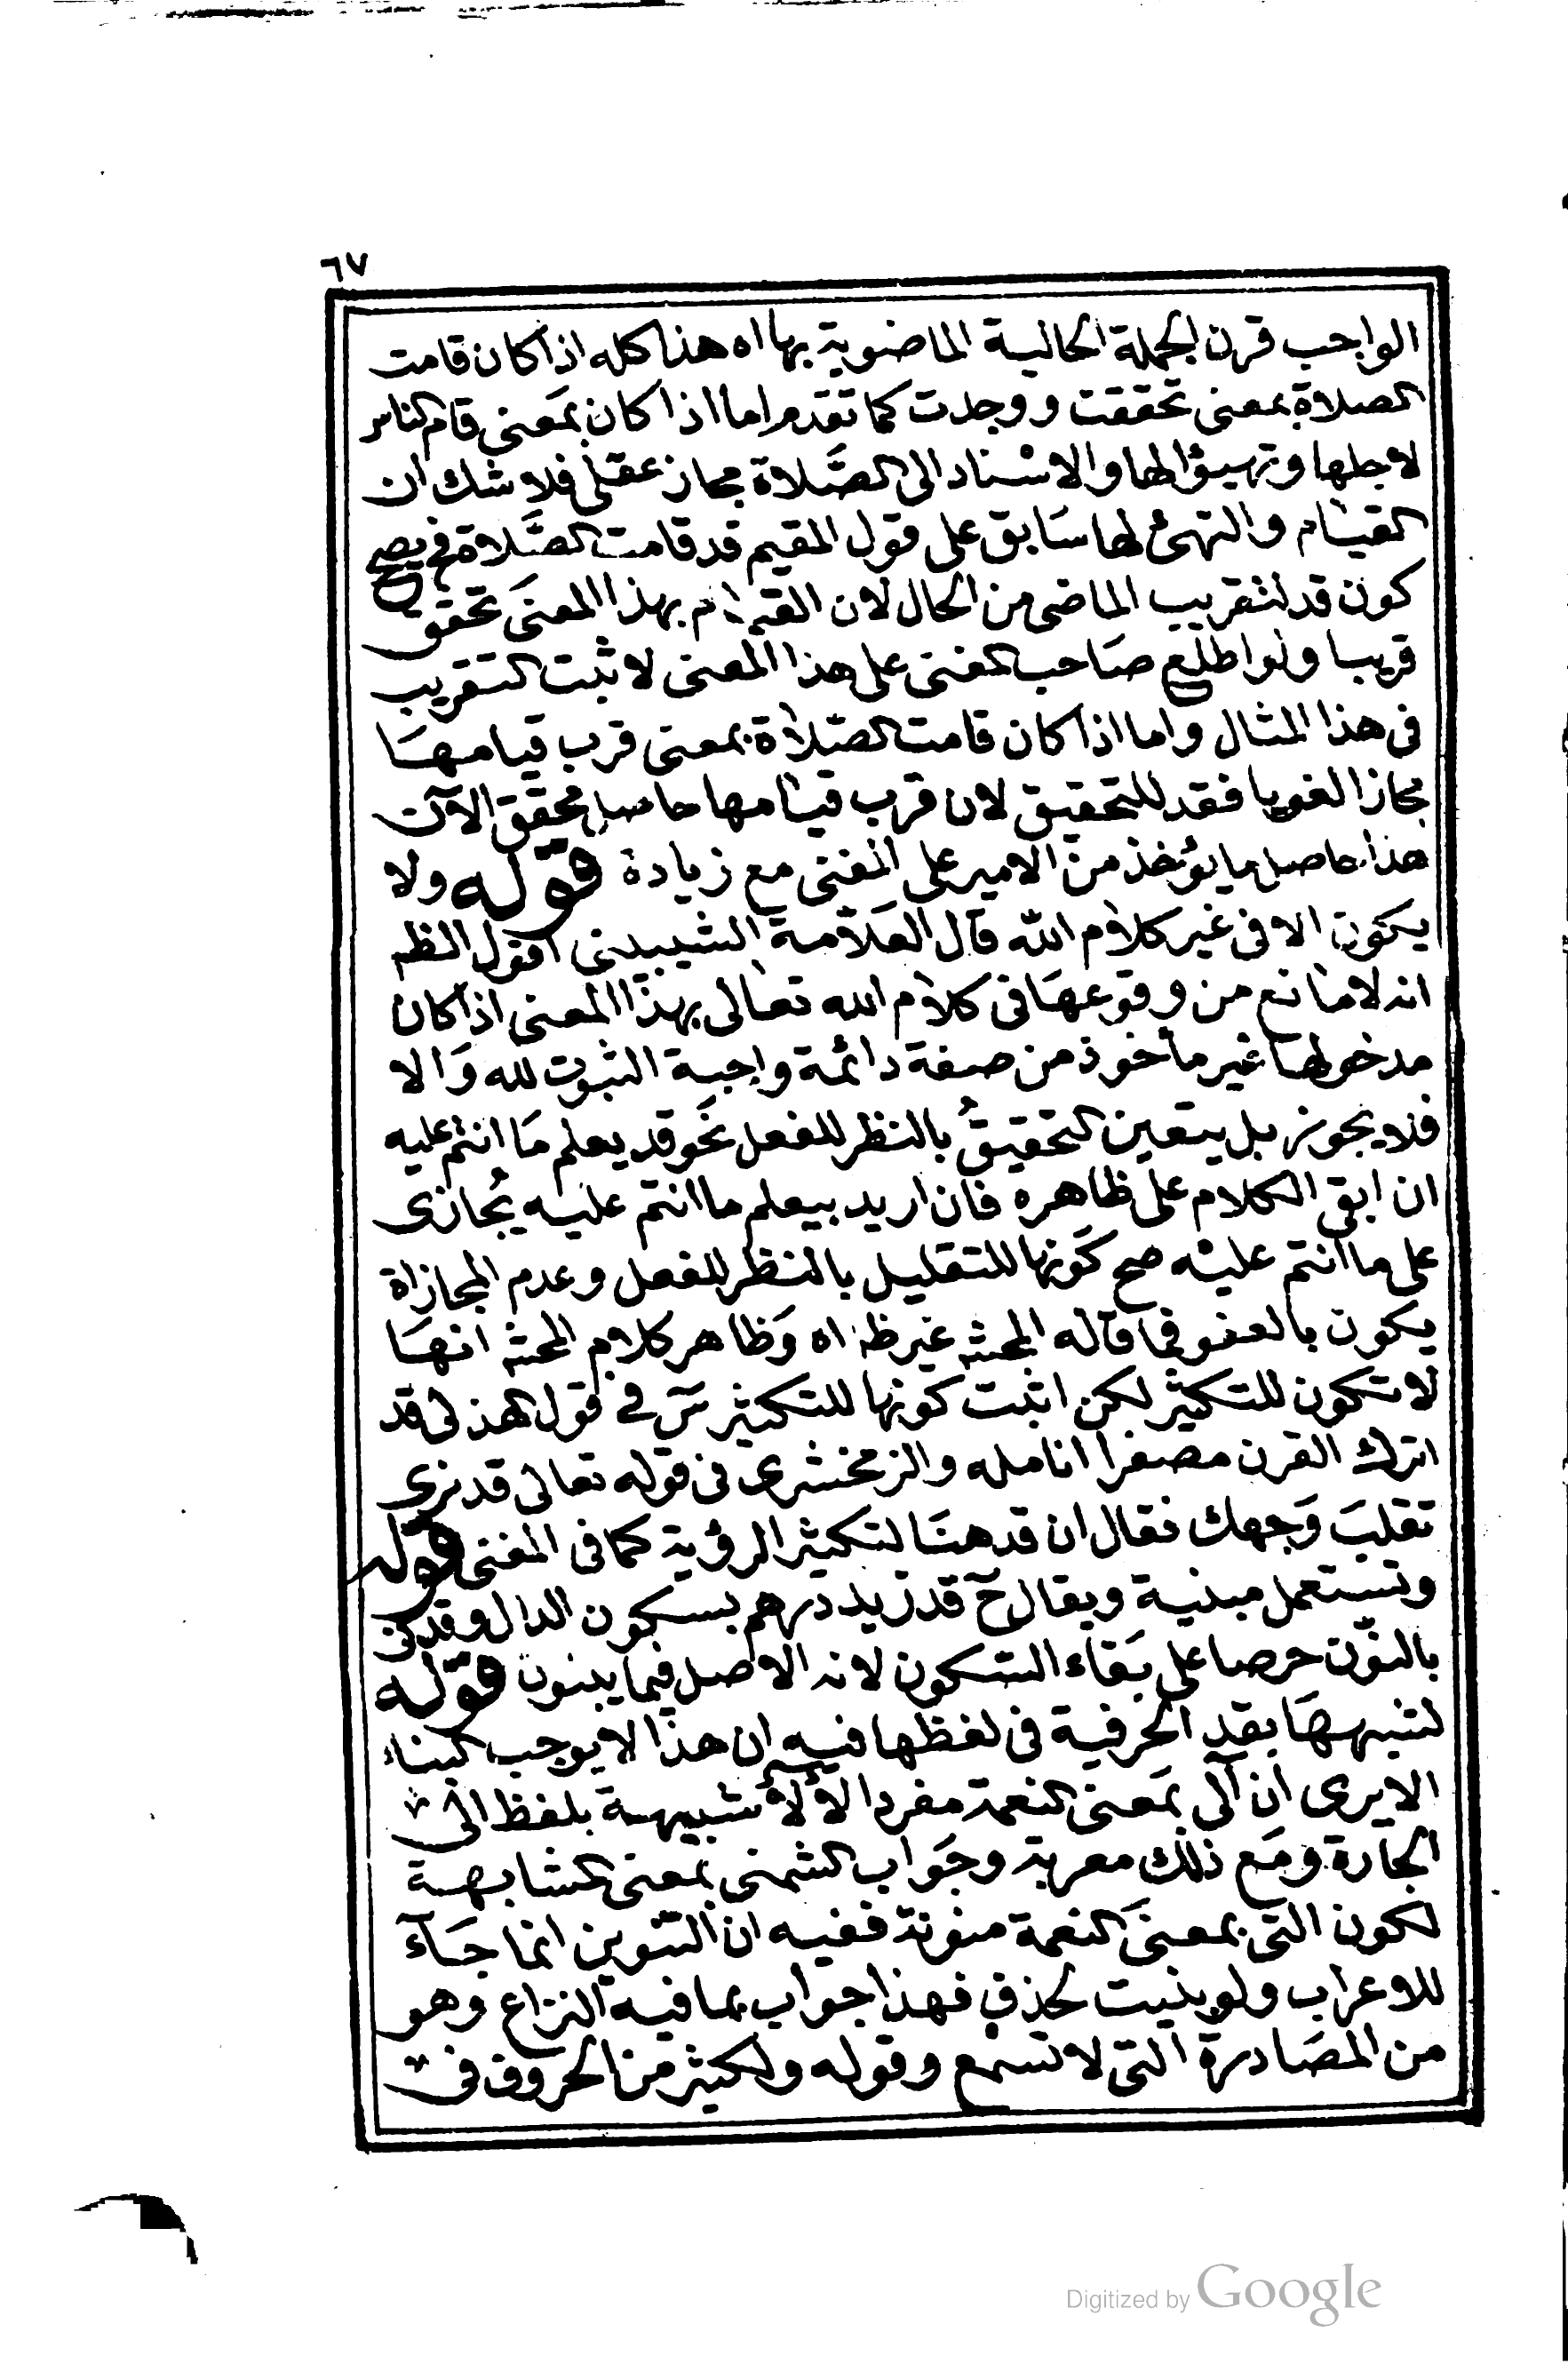 ٦٧
الواجب قرن الجملة الحالية الماضوية بها اه هذا كله اذا كان قامت
الصلاة بمعنى تحققت ووجدت كما تقدم اما اذا كان بمعنى قام الناس
لاجلها وتهيؤا لها والاسناد الى الصلاة مجاز عقلى فلا شك ان
القيام والتهئ لها سابق على قول المقيم قد قامت الصلاة فح يصح
كون قد لتقريب الماضى من الحال لان القيام بهذا المعنى تحقق
قريبا ولو اطلع صاحب المغنى على هذا المعنى لاثبت التقريب
فى هذا المثال واما اذا كان قامت الصلاة بمعنى قرب قيامها
مجازا لغويا فقد للتحقيق لان قرب قيامها حاصل محقق الآن
هذا حاصل ما يؤخذ من الامير على المغنى مع زيادة قوله ولا
يكون الا فى غير كلام الله قال العلامة الشيبينى اقول الظ
انه لا مانع من وقوعها فى كلام الله تعالى بهذا المعنى اذا كان
مدخولها غير مأخوذ من صفة دائمة واجبة الثبوت لله والا
فلا يجوز بل يتعين التحقيق بالنظر للفعل نحو قد يعلم ما انتم عليه
ان ابقى الكلام على ظاهره فان اريد بيعلم ما انتم عليه يجازى
على ما انتم عليه صح كونها للتقليل بالنظر للفعل وعدم المجازاة
يكون بالعفو فما قاله المحشه غير ظ اه وظاهر كلام المحشه انها
لا تكون للتكثير لكن اثبت كونها للتكثير س فى قول الهذلى قد
اترك القرن مصفرا انامله والزمخشرى فى قوله تعالى قد نرى
تقلب وجهك فقال ان قد هنا لتكثير الرؤية كما فى المغنى قوله
وتستعمل مبنية ويقال ح قد زيد درهم بسكون الدال وقدنى
بالنون حرصا على بقاء السكون لانه الاصل فيما يبنون قوله
لشبهها بقد الحرفية فى لفظها فيه ان هذا لا يوجب البناء
الا يرى ان آلى بمعنى النعمة مفرد الألاء شبيهة بلفظ الى
الجارة ومع ذلك معربة وجواب الشمنى بمعنى المشابهة
لكون التى بمعنى النعمة منونة ففيه ان التنوين انما جاء
للاعراب ولو بنيت لحذف فهذا جواب بما فيه النزاع وهو
من المصادرة التى لا تسمع وقوله ولكثير من الحروف فى
Digitized by Google